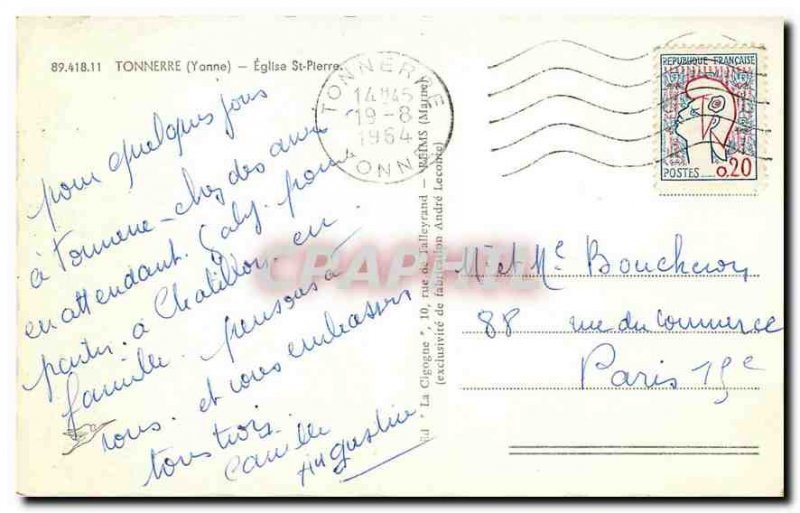 89.418.11 TONNERRE (Yonne) — Église St-Pierre.
pour quelques jours
à tonnerre - chez des amis
en attendant Gaby. pour
partir à Chatillon en
famille. pensons à
vous. et vous embrassons
tous trois.
Camille
Augustine
TONNERRE
14H45
19-8
1964
YONNE
Ed "La Cigogne", 10, rue de Talleyrand - REIMS (Marne)
(exclusivité de fabrication André Leconte)
REPUBLIQUE FRANÇAISE
POSTES 0,20
Mr et Me Boucheron
88 rue du Commerce
Paris 15e
CPARPHIL